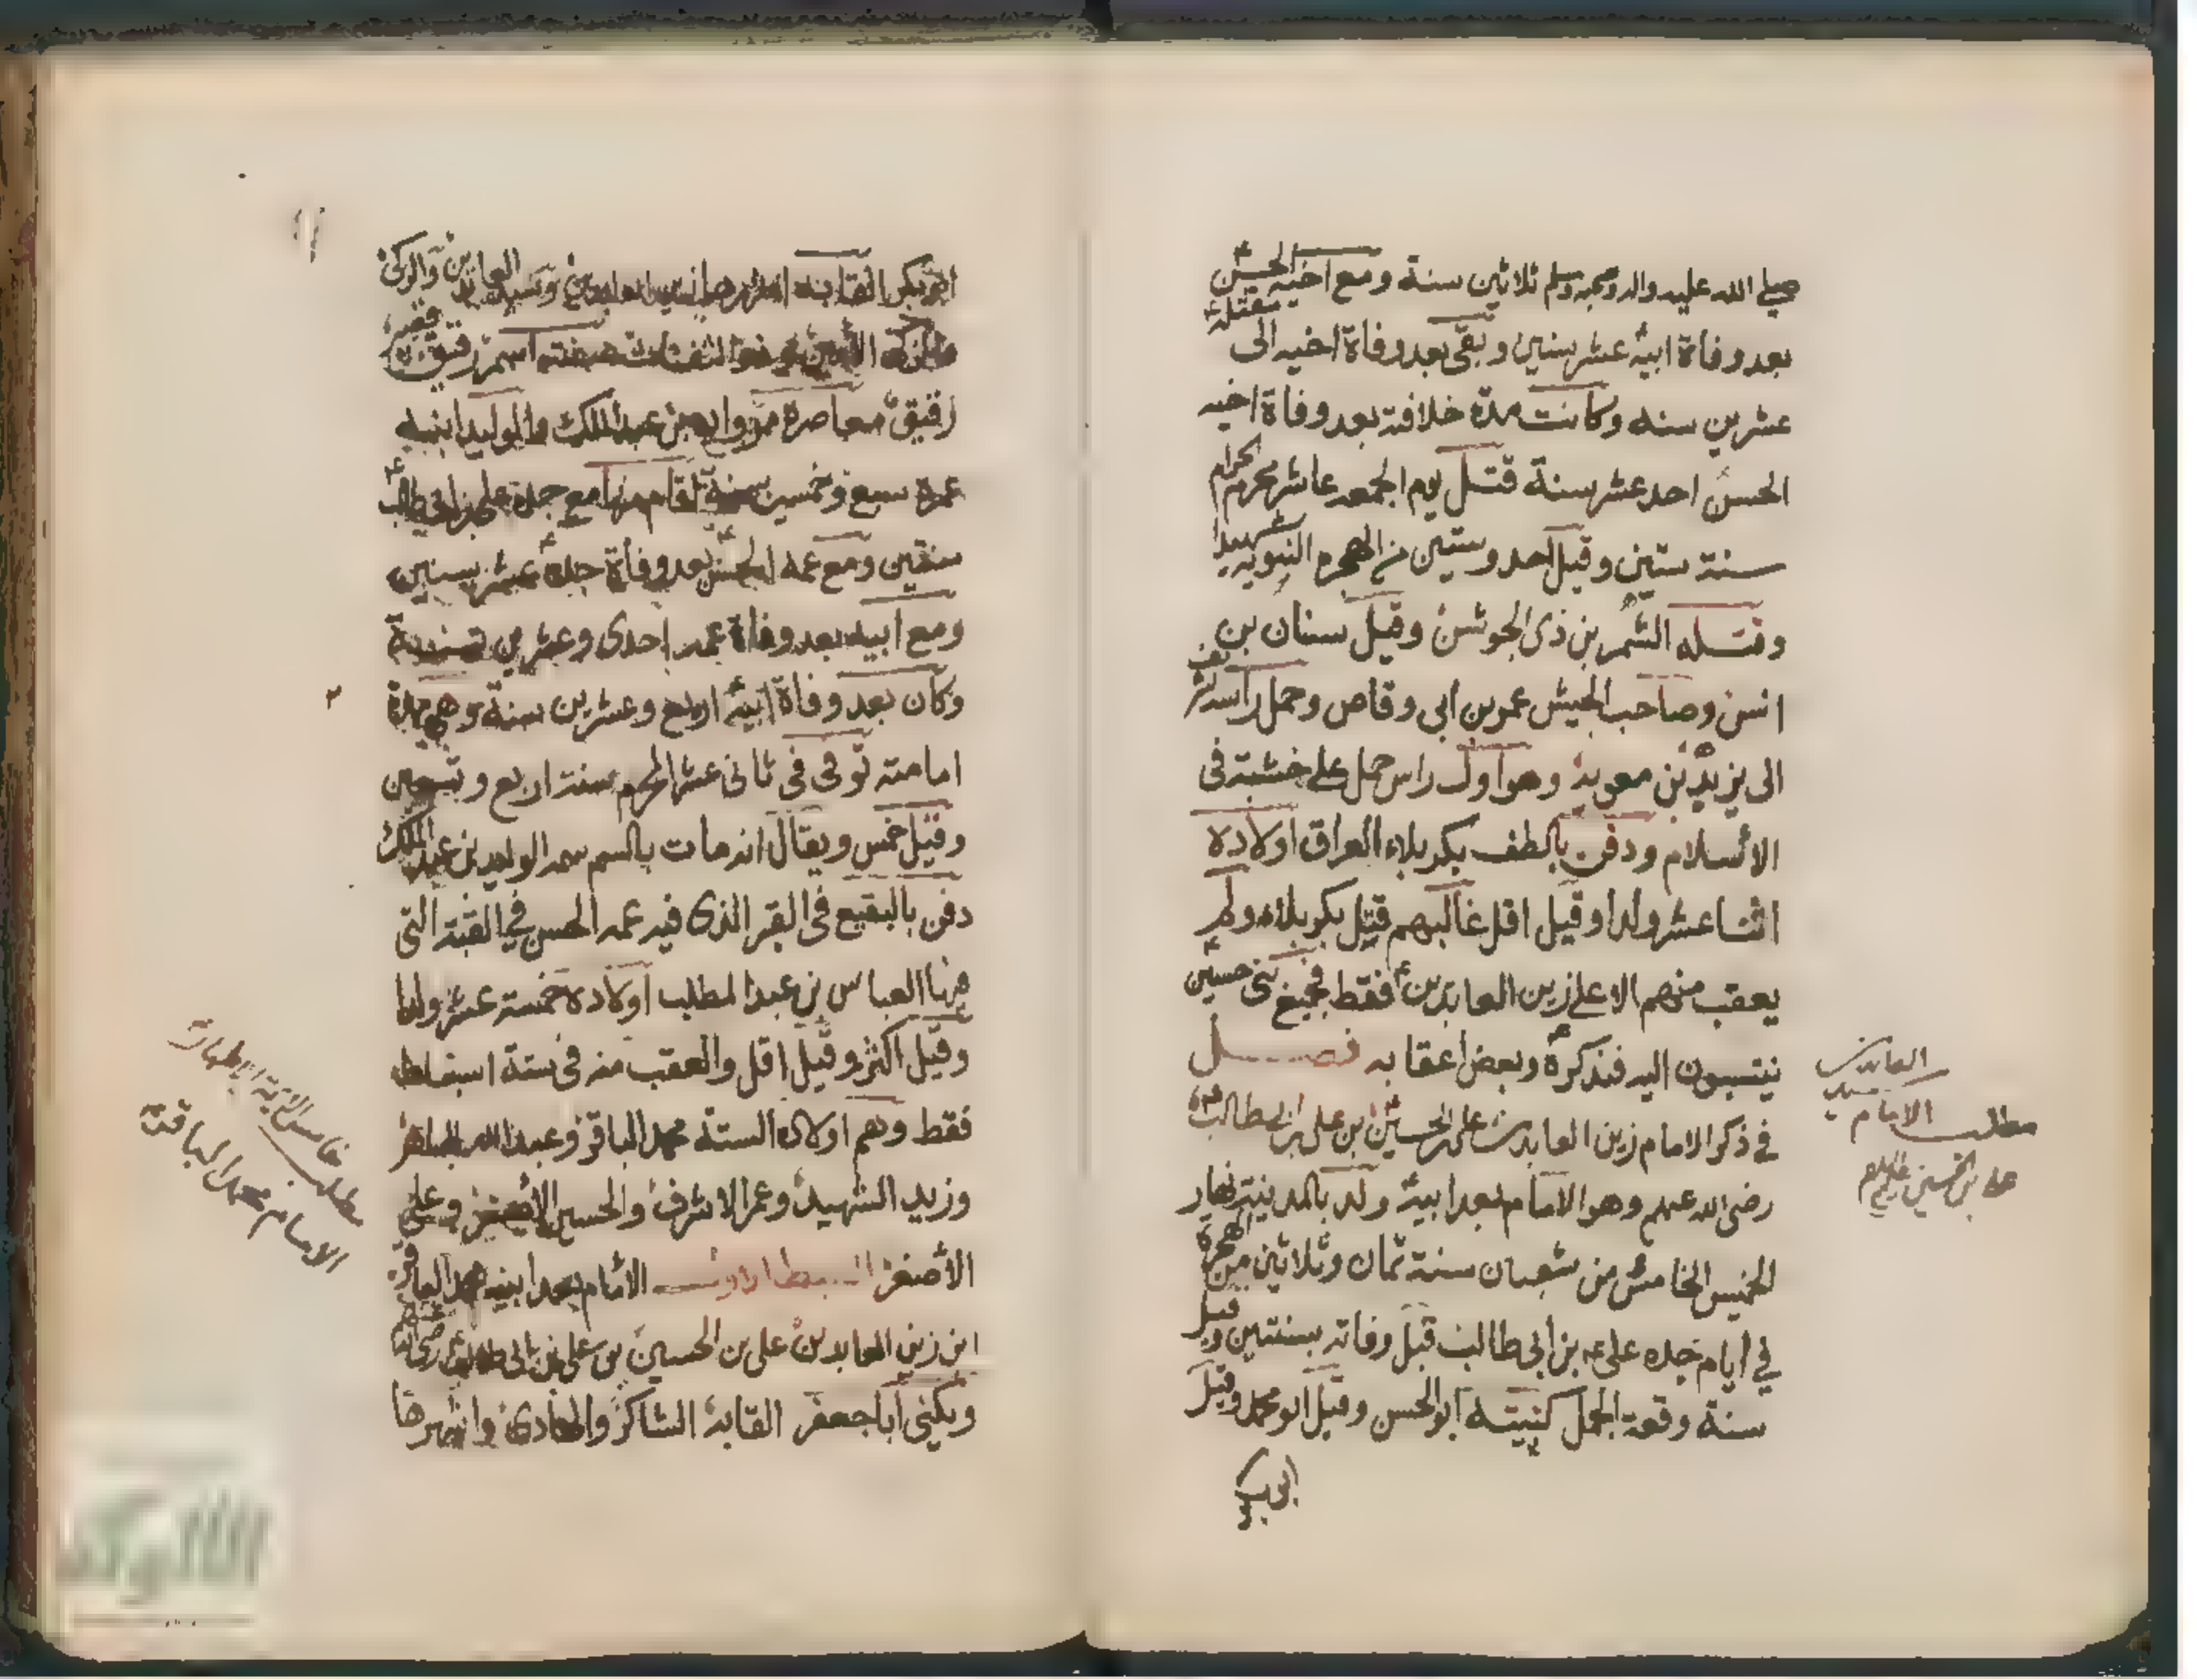 صلى الله عليه واله وصحبه وسلم ثلاثين سنة ومع اخيه الحسن
بعد وفاة ابيه عشر سنين وبقى بعد وفاة اخيه الى مقتله
عشرين سنه وكانت مدة خلافته بعد وفاة اخيه
الحسن احد عشر سنة قتل يوم الجمعه عاشر محرم الحرام
سنة ستين وقيل احد وستين من الهجره النبويه شهيدا
وقتله الشمر بن ذى الجوشن وقيل سنان بن
انس وصاحب الجيش عمر بن ابى وقاص وحمل راسه
الى يزيد بن معويه وهو اول راس حمل على خشبة فى
الاسلام ودفن بالطف بكربلاء العراق اولاده
اثنا عشر ولدا وقيل اقل غالبهم قتل بكربلاء ولم
يعقب منهم الا على زين العابدين فقط فجميع بنى حسين
ينتسبون اليه فنذكره وبعض اعقابه فصل
فى ذكر الامام زين العابدين على بن الحسين بن على بن ابى طالب
رضى الله عنهم وهو الامام بعد ابيه ولد بالمدينة نهار
الخميس الخامس من شعبان سنة ثمان وثلاثين من الهجرة
في ايام جده على بن ابى طالب قبل وفاته بسنتين وقيل
سنة وقعة الجمل كنيته ابو الحسن وقيل ابو محمد وقيل
ابو بكر
العابدين
سيد
مطلب الامام
على بن الحسين عليهم
ابو بكر القابه العابدين والزكى
الامين صفته اسمر رقيق
معاصره مروان بن عبد الملك والوليد ابنه
عمره سبع وخمسين سنة اقام منها مع جده على بن ابى طالب
سنتين ومع عمه الحسن بعد وفاة جده عشر سنين
ومع ابيه بعد وفاة عمه احدى وعشرين سنة
وكان بعد وفاة ابيه اربع وعشرين سنة وهى مدة
امامته توفى فى ثانى عشر المحرم سنة اربع وتسعين
وقيل خمس ويقال انه مات بالسم سمه الوليد بن عبد الملك
دفن بالبقيع فى القبر الذى فيه عمه الحسن في القبة التى
فيها العباس بن عبد المطلب اولاده خمسة عشر ولدا
وقيل اكثر وقيل اقل والعقب منه فى ستة اسباط
فقط وهم اولاده الستة محمد الباقر وعبد الله الباهر
وزيد الشهيد وعمر الاشرف والحسين الاصغر وعلى
الأصغر السبط الاول الامام بعد ابيه محمد الباقر
ابن زين العابدين على بن الحسين بن على بن ابى طالب رضى الله
ويكنى ابا جعفر القابه الشاكر والهادى واشهرها
مطلب خامس الائمة الاطهار
الامام محمد الباقر